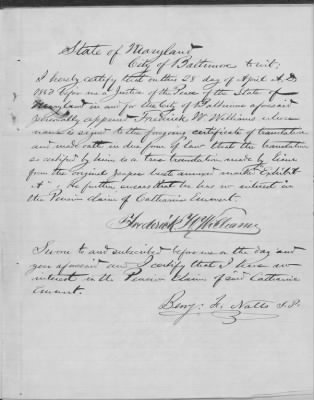 State of Maryland
City of Baltimore to wit:
I hereby certify that on this 28 day of April A.D.
before me a Justice of the Peace of the State of
Maryland in and for the City of Baltimore aforesaid
personally appeared Frederick W. Williams whose
name is signed to the foregoing certificate of translation
and made oath in due form of law that the translation
so certified by him is a true translation made by him
from the original paper hereto annexed marked Exhibit
"A". He further swears that he has no interest in
the Pension claim of Catharine
Frederick W Williams
Sworn to and subscribed before me on the day and
year aforesaid and I certify that I have no
interest in the Pension Claim of said Catharine
Benj. J.P.